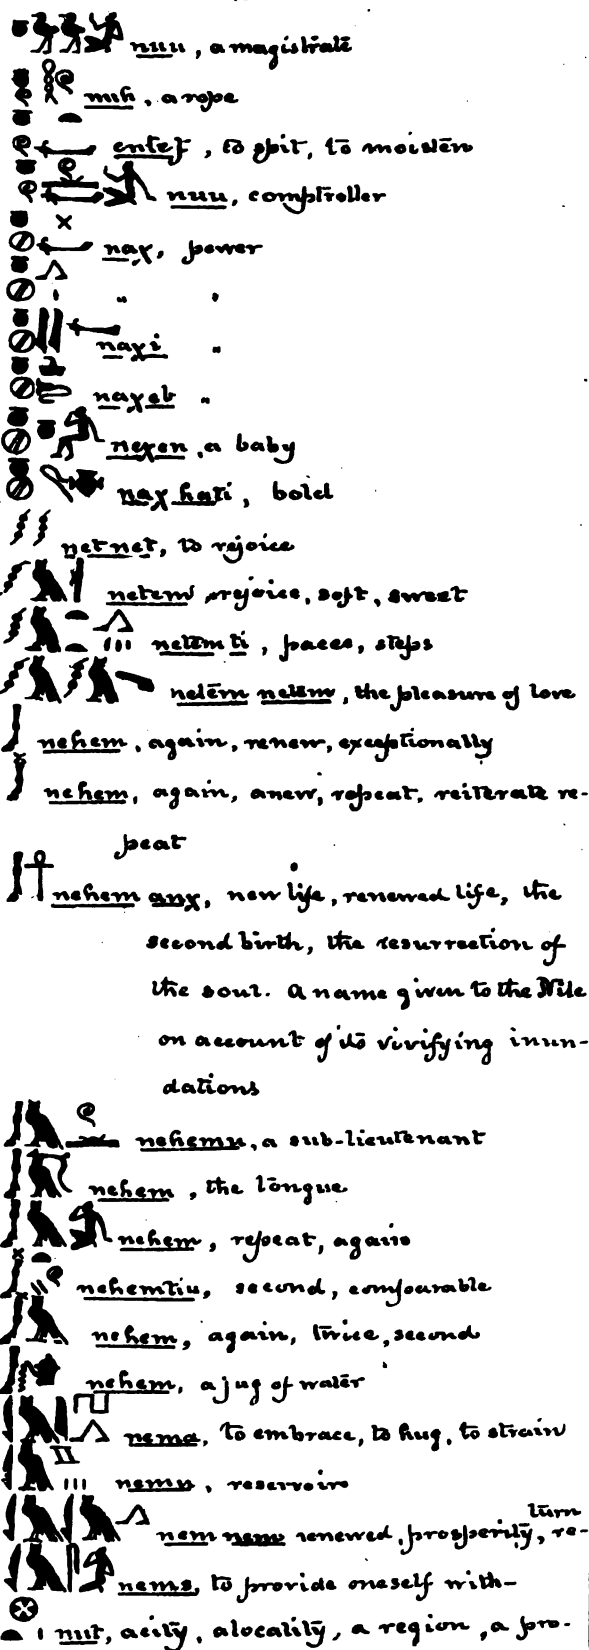 nuu, a magistrate
nuh, a rope
entef, to spit, to moisten
nuu, comptroller
naχ, power
" "
naχi "
naχeb "
neχen, a baby
naχ hati, bold
netnet, to rejoice
netem rejoice, soft, sweet
netem ti, paces, steps
netem netem, the pleasure of love
nehem, again, renew, exceptionally
nehem, again, anew, repeat, reiterate re-
peat
nehem anχ, new life, renewed life, the
second birth, the resurrection of
the soul. A name given to the Nile
on account of its vivifying inun-
dations
nehemu, a sub-lieutenant
nehem, the tongue
nehem, repeat, again
nehemtiu, second, comparable
nehem, again, twice, second
nehem, a jug of water
nema, to embrace, to hug, to strain
nemu, reservoir
turn
nem nem renewed, prosperity, re-
nems, to provide oneself with-
nut, a city, a locality, a region, a pro-